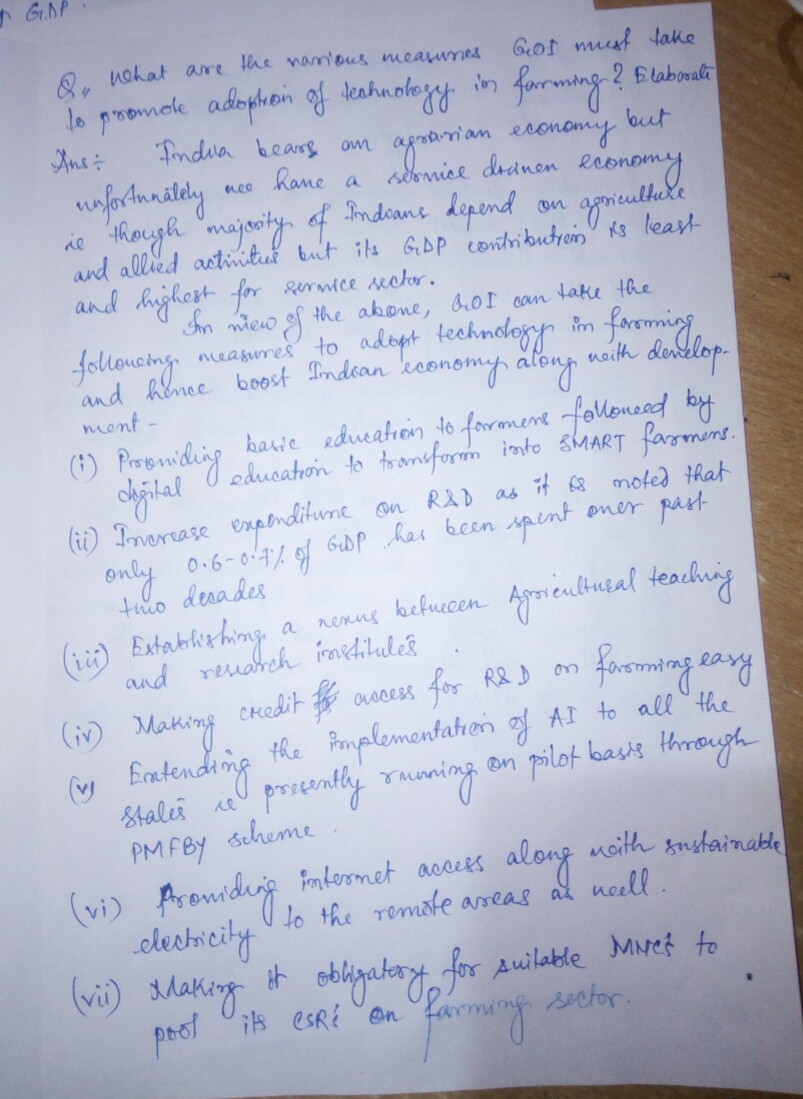 GDP.
Q, What are the various measures GOI must take
to promote adoption of technology in farming? Elaborate
Ans:- India bears an agrarian economy but
unfortunately we have a service driven economy
ie though majority of Indians depend on agriculture
and allied activities but its GDP contribution is least
and highest for service sector.
In view of the above, GOI can take the
following measures to adopt technology in farming
and hence boost Indian economy along with develop-
ment -
(i) Providing basic education to farmers followed by
digital education to transform into SMART farmers.
(ii) Increase expenditure on R&D as it is noted that
only 0.6-0.7% of GDP has been spent over past
two decades
(iii) Establishing a nexus between Agricultural teaching
and research institutes.
(iv) Making credit access for R&D on farming easy
(v) Extending the implementation of AI to all the
states ie presently running on pilot basis through
PMFBY scheme.
(vi) Providing internet access along with sustainable
electricity to the remote areas as well.
(vii) Making it obligatory for suitable MNCs to
pool its CSRs on farming sector.